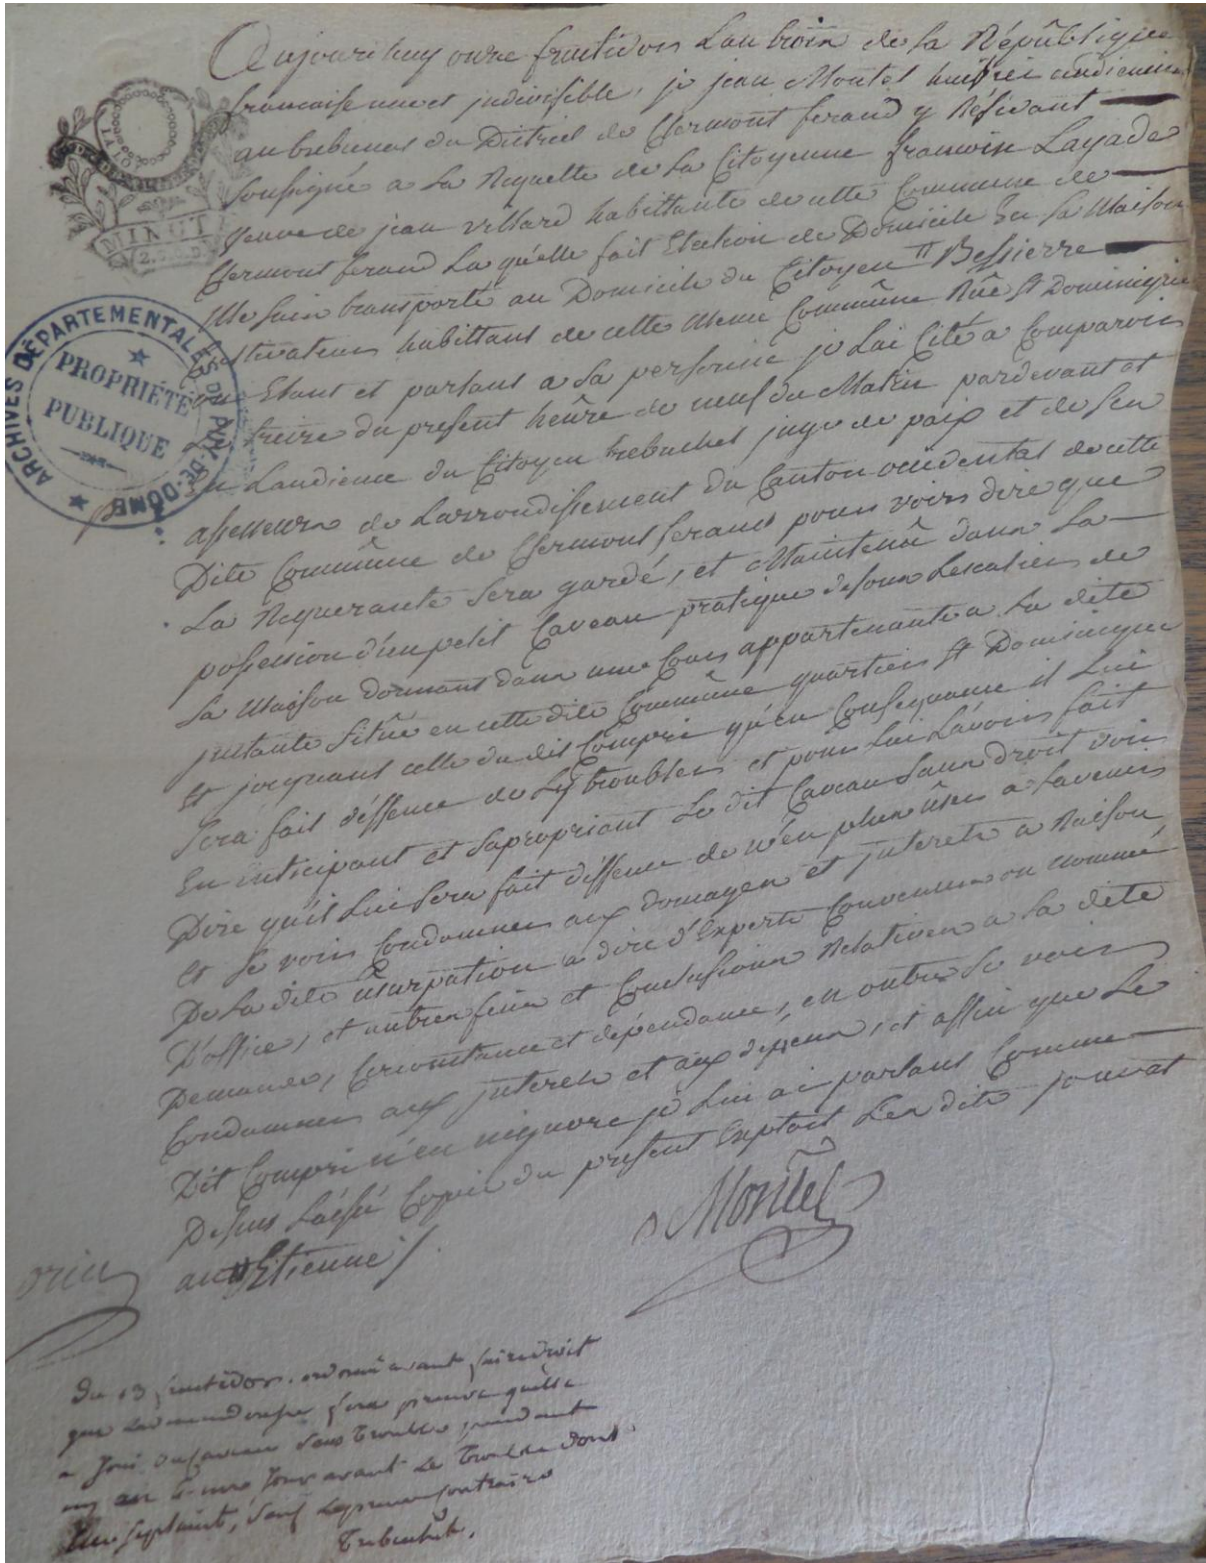 Aujourd'huy onze fructidors L'an trois de la Républiqe
francaise une et jndivisible, je jean Montel huissier
au tribunal du District de Clermont ferand y Résidant
soussigné a la Requette de la Citoyenne francoise Layade
veuve de jean villard habittante de cette Commune de
Clermont ferand La quelle fait Election de Domicile En sa Maison
Me suis transporté au Domicile du Citoyen tt Bessierre
Cultivateur habittant de cette meme Commûne Rüe St Dominique
ou Etant et parlant a sa personne je Lai Cité a Comparoir
Le treize du present heûre de neuf du Matin pardevant et
En Laudience du Citoyen trebuchet juge de paix et de ses
assesseurs de Larrondissement du Canton occidental de cette
Dite Commûne de Clermont ferand pour voirs dire que
La Requerante sera gardé, et Maintenüe dans La
possession d'un petit Caveau pratiqué desous Lescalier de
sa Maison donnant dans une Cour appartenante a La dite
justante sitüé en cette dite Commûne quartier St Dominique
Et jocquant celle du dit Compri qu'en Consequence il Lui
sera fait déffence de Ly troubler et pour Lui Lavoir fait
En anticipant et sapropriant Le dit Caveau sans droit voir
Dire qu'il Lui sera fait déffence de n'en plus üser a Lavenir
Et se voir Condamner aux domages et jnterets a Raison
De La dite üsurpation a dire d'Experts Convenus ou nommé
D'office, et autres fins et Conclusions Relatives a La dite
Demande, Circonstance et dépendance, en outre se voir
Condamner aux jnterets et aux dépens, et affin que Le
Dit Compri n'en nignore je Lui ai parlant Comme
Dessus Laissé Copie du present Exploit Les dits jour et
an Etienne /.
Montel
Du 13 fructidor. ordonné avant faire droit
que la demanderesse fera preuve quelle
a joui du caveau sans trouble pendant
un an et un jour avant Le trouble dont
Elle se plaint, sauf La preuve contraire
Trebuchet.
MINUT
ARCHIVES DÉPARTEMENTALES DU PUY-DE-DÔME
PROPRIÉTÉ
PUBLIQUE